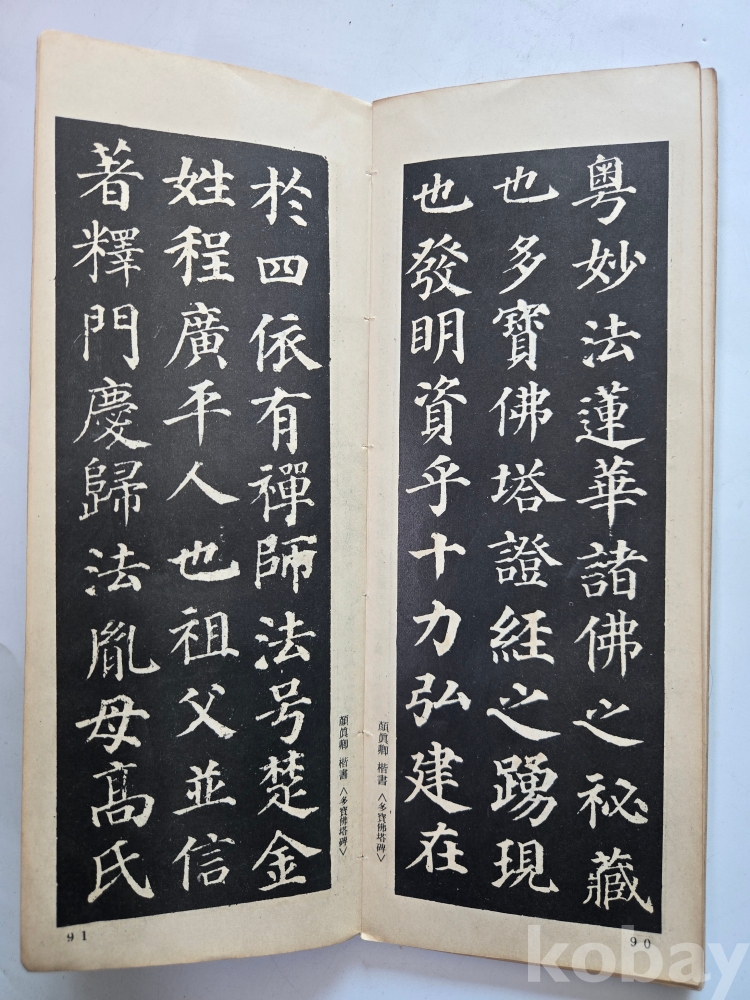 粤妙法蓮華諸佛之祕藏
也多寶佛塔證経之踴現
也發明資乎十力弘建在
顔眞卿 楷書〈多寶佛塔碑〉
90
於四依有禪師法号楚金
姓程廣平人也祖父並信
著釋門慶歸法胤母髙氏
顔眞卿 楷書〈多寶佛塔碑〉
91
kobay